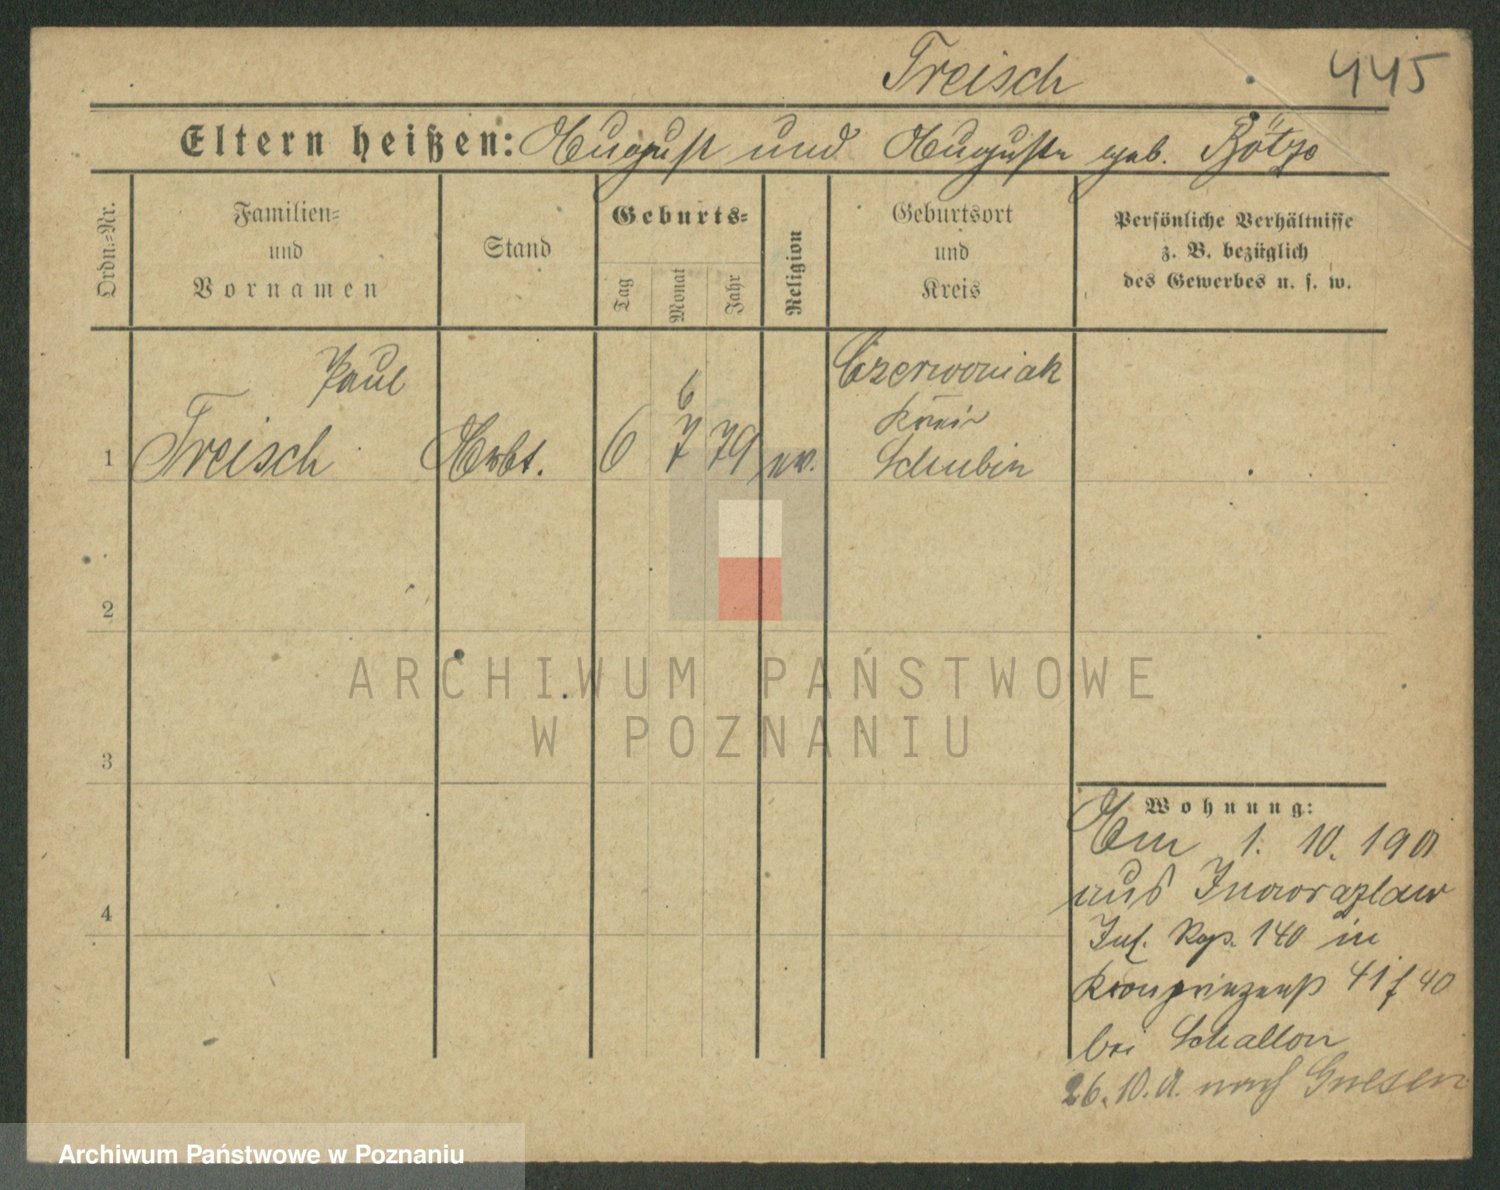 Treisch 445
Eltern heißen: August und Auguste geb. Bötze
Ordn.=Nr.
Familien=
und
Vornamen
Stand
Geburts=
Tag
Monat
Jahr
Religion
Geburtsort
und
Kreis
Persönliche Verhältnisse
z. B. bezüglich
des Gewerbes u. s. w.
Paul
1 Treisch Arbt. 6 7 79 ev.
6
Czerwoniak
Kreis
Schubin
2
3
4
Wohnung:
Am 1. 10. 1901
aus Inowrazlaw
Inf. Rgs. 140 in
Kronprinzenst 41 f 40
bei Schallon
26.10.01. nach Gnesen
ARCHIWUM PAŃSTWOWE
W POZNANIU
Archiwum Państwowe w Poznaniu